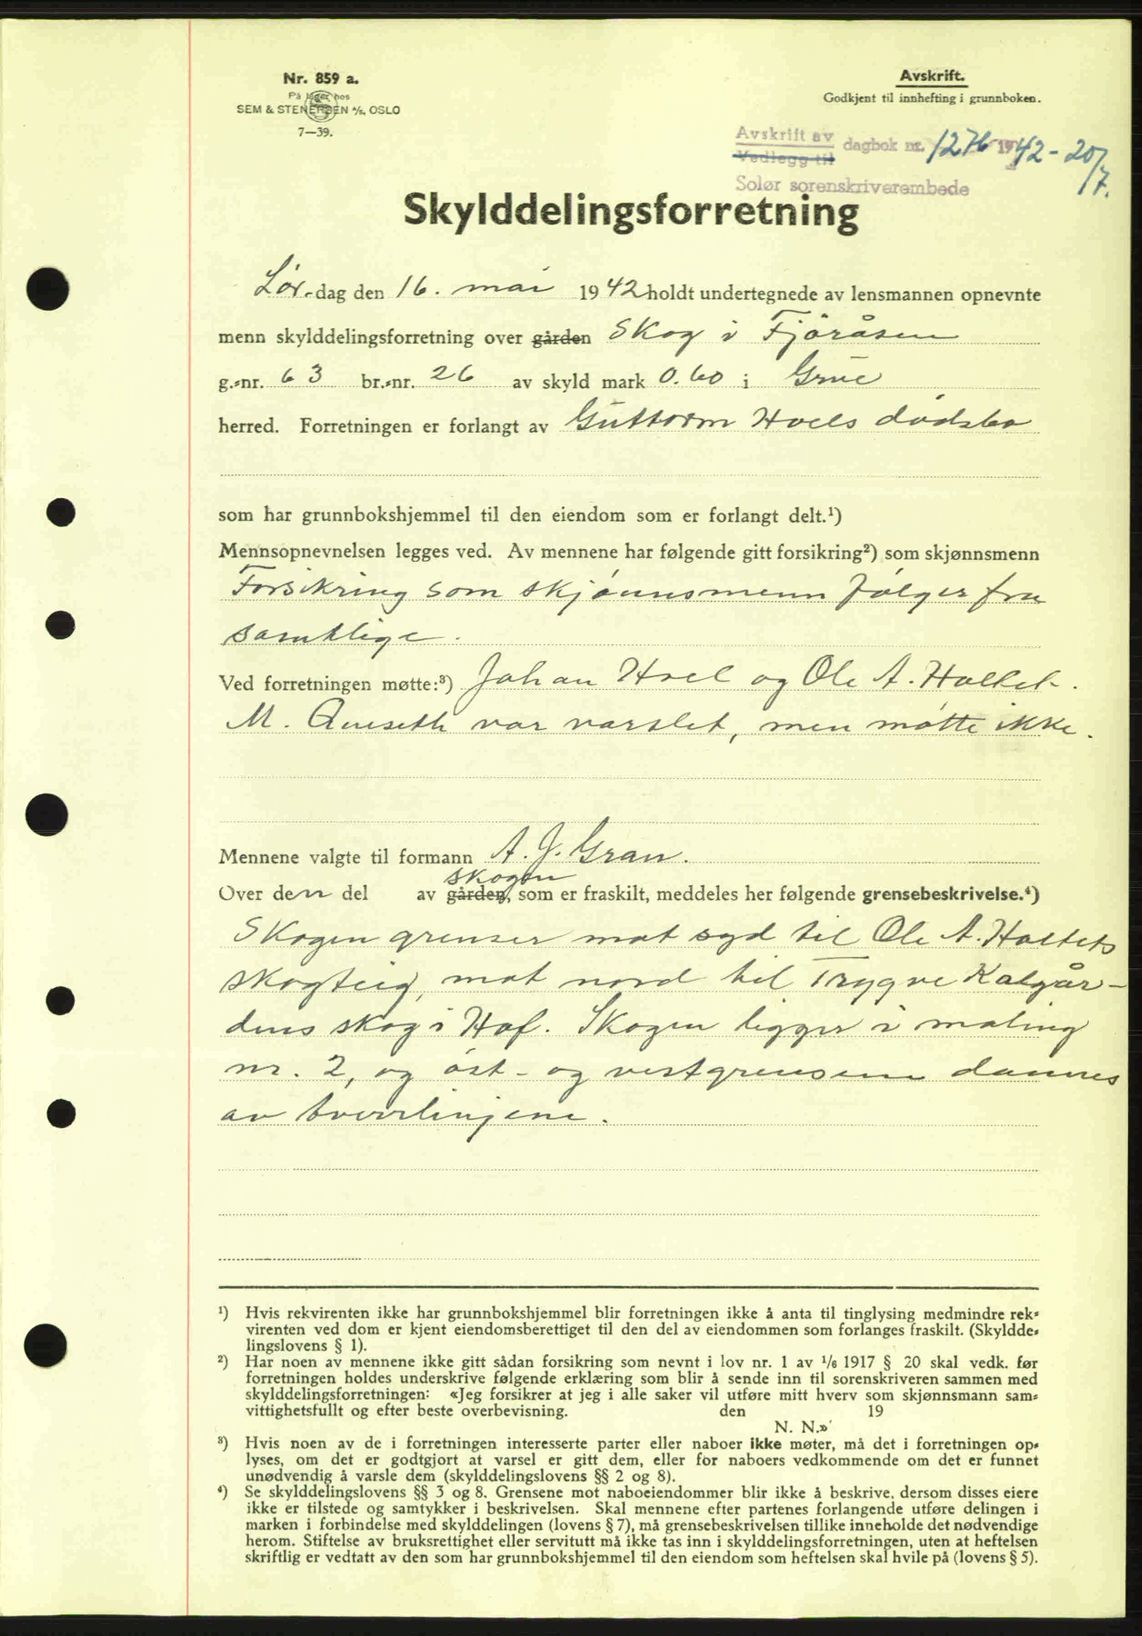 Nr. 859 a.
På lager hos
SEM & STENERSEN A/S, OSLO
7—39.
Avskrift.
Godkjent til innhefting i grunnboken.
Avskrift av
Vedlegg til
dagbok nr. 1276 1942 - 20/7.
Solør sorenskriverembede
Skylddelingsforretning
Lør-dag den 16. mai 1942 holdt undertegnede av lensmannen opnevnte
menn skylddelingsforretning over gården Skog i Fjöråsen
g.-nr. 63 br.-nr. 26 av skyld mark 0.60 i Grue
herred. Forretningen er forlangt av Guttorm Hoels dødsbo
som har grunnbokshjemmel til den eiendom som er forlangt delt.¹)
Mennsopnevnelsen legges ved. Av mennene har følgende gitt forsikring²) som skjønnsmenn
Forsikring som skjønnsmenn følger fra
samtlige.
Ved forretningen møtte:³) Johan Hoel og Ole A. Holtet.
M. var varslet, men møtte ikke.
Mennene valgte til formann A. J. Gran.
skogen
Over den del av gården, som er fraskilt, meddeles her følgende grensebeskrivelse.⁴)
Skogen grenser mot syd til Ole A. Holtets
skogteig, mot nord til Trygve Kalgår-
dens skog i Hof. Skogen ligger i måling
nr. 2, og öst- og vestgrensene dannes
av tverrlinjene.
¹) Hvis rekvirenten ikke har grunnbokshjemmel blir forretningen ikke å anta til tinglysing medmindre rek-
virenten ved dom er kjent eiendomsberettiget til den del av eiendommen som forlanges fraskilt. (Skyldde-
lingslovens § 1).
²) Har noen av mennene ikke gitt sådan forsikring som nevnt i lov nr. 1 av 1/6 1917 § 20 skal vedk. før
forretningen holdes underskrive følgende erklæring som blir å sende inn til sorenskriveren sammen med
skylddelingsforretningen: «Jeg forsikrer at jeg i alle saker vil utføre mitt hverv som skjønnsmann sam-
vittighetsfullt og efter beste overbevisning. den 19
N. N.»
³) Hvis noen av de i forretningen interesserte parter eller naboer ikke møter, må det i forretningen op-
lyses, om det er godtgjort at varsel er gitt dem, eller for naboers vedkommende om det er funnet
unødvendig å varsle dem (skylddelingslovens §§ 2 og 8).
⁴) Se skylddelingslovens §§ 3 og 8. Grensene mot naboeiendommer blir ikke å beskrive, dersom disses eiere
ikke er tilstede og samtykker i beskrivelsen. Skal mennene efter partenes forlangende utføre delingen i
marken i forbindelse med skylddelingen (lovens § 7), må grensebeskrivelsen tillike inneholde det nødvendige
herom. Stiftelse av bruksrettighet eller servitutt må ikke tas inn i skylddelingsforretningen, uten at heftelsen
skriftlig er vedtatt av den som har grunnbokshjemmel til den eiendom som heftelsen skal hvile på (lovens § 5).